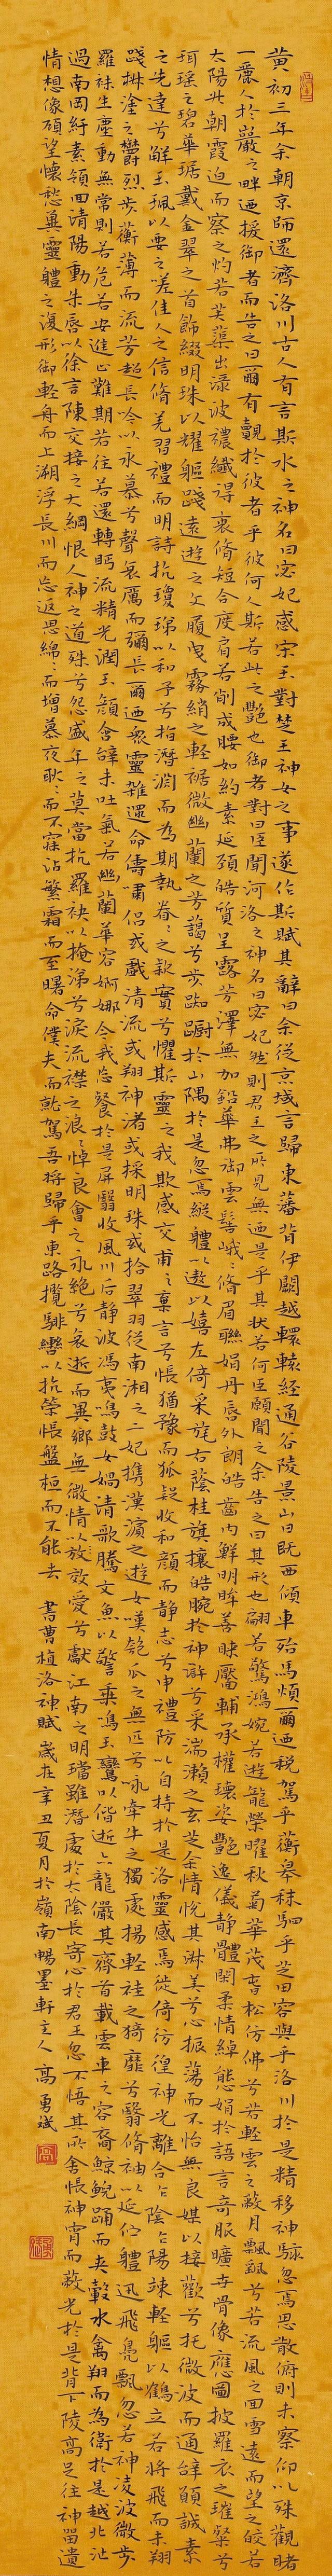 黃初三年余朝京師還濟洛川古人有言斯水之神名曰宓妃感宋玉對楚王神女之事遂作斯賦其辭曰余從京域言歸東藩背伊闕越轘轅經通谷陵景山日既西傾車殆馬煩爾迺稅駕乎蘅皋秣駟乎芝田容與乎洛川於是精移神駭忽焉思散俯則未察仰以殊觀睹
一麗人於巖之畔迺援御者而告之曰爾有覿於彼者乎彼何人斯若此之艷也御者對曰臣聞河洛之神名曰宓妃然則君王之所見無迺是乎其狀若何臣願聞之余告之曰其形也翩若驚鴻婉若遊龍榮曜秋菊華茂春松仿佛兮若輕雲之蔽月飄飄兮若流風之回雪遠而望之皎若
太陽升朝霞迫而察之灼若芙蕖出淥波穠纖得衷脩短合度肩若削成腰如約素延頸皓質呈露芳澤無加鉛華弗御雲髻峨峨脩眉聯娟丹唇外朗皓齒內鮮明眸善睞靨輔承權瓌姿艷逸儀靜體閑柔情綽態媚於語言奇服曠世骨像應圖披羅衣之璀粲兮
珥瑤之碧華琚戴金翠之首飾綴明珠以耀軀踐遠遊之文履曳霧綃之輕裾微幽蘭之芳藹兮步踟躕於山隅於是忽焉縱體以遨以嬉左倚采旄右蔭桂旗攘皓腕於神滸兮采湍瀨之玄芝余情悅其淑美兮心振蕩而不怡無良媒以接歡兮托微波而通辭願誠素
之先達兮解玉珮以要之嗟佳人之信脩羌習禮而明詩抗瓊珶以和予兮指潛淵而為期執眷々之款實兮懼斯靈之我欺感交甫之棄言兮悵猶豫而狐疑收和顏而靜志兮申禮防以自持於是洛靈感焉徙倚彷徨神光離合乍陰乍陽竦輕軀以鶴立若將飛而未翔
踐椒塗之鬱烈步蘅薄而流芳超長吟以永慕兮聲哀厲而彌長爾迺眾靈雜遝命儔嘯侶或戲清流或翔神渚或採明珠或拾翠羽從南湘之二妃攜漢濱之遊女嘆匏瓜之無匹兮詠牽牛之獨處揚輕袿之猗靡兮翳脩袖以延佇體迅飛鳧飄忽若神凌波微步
羅襪生塵動無常則若危若安進止難期若往若還轉眄流精光潤玉顏含辭未吐氣若幽蘭華容婀娜令我忘餐於是屏翳收風川后靜波馮夷鳴鼓女媧清歌騰文魚以警乘鳴玉鸞以偕逝六龍儼其齊首載雲車之容裔鯨鯢踊而夾轂水禽翔而為衛於是越北沚
過南岡紆素領回清陽動朱唇以徐言陳交接之大綱恨人神之道殊兮怨盛年之莫當抗羅袂以掩涕兮淚流襟之浪々悼良會之永絕兮哀逝而異鄉無一微情以放效愛兮獻江南之明璫雖潛處於太陰長寄心於君王忽不悟其所舍悵神宵而蔽光於是背下陵高足往神留遺
情想像顧望懷愁冀靈體之復形御輕舟而上溯浮長川而忘返思綿々而增慕夜耿々而不寐沾繁霜而至曙命僕夫而就駕吾將歸乎東路攬騑轡以抗策悵盤桓而不能去 書曹植洛神賦歲在辛丑夏月於嶺南暢墨軒主人高勇斌